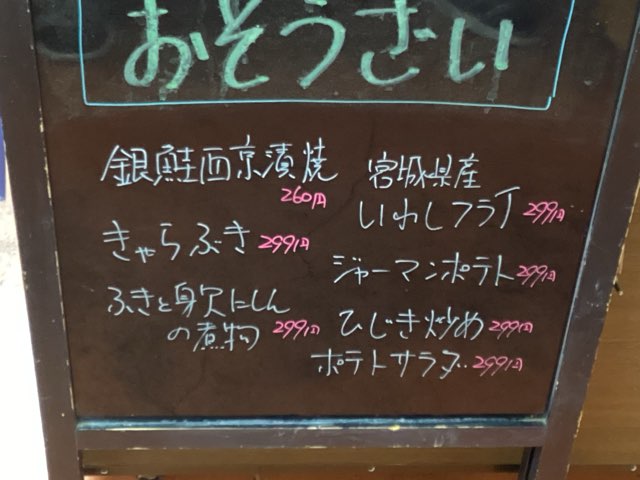 おそうさい
銀鮭西京漬焼
260円
きゃらぶき 299円
ふきと身欠にしん
の煮物 299円
宮城県産
いわしフライ 299円
ジャーマンポテト 299円
ひじき炒め 299円
ポテトサラダ 299円